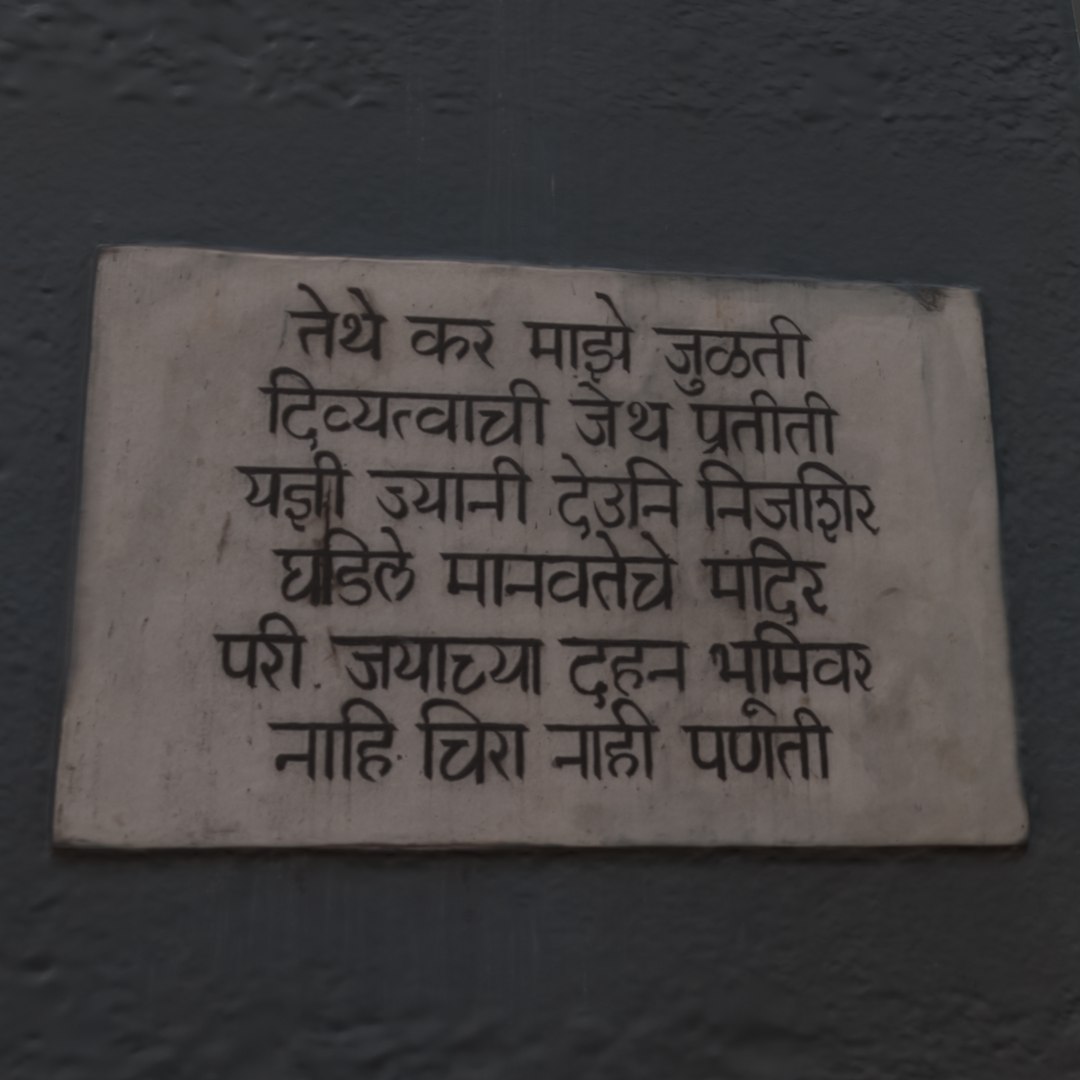 तेथे कर माझे जुळती
दिव्यत्वाची जेथ प्रतीती
यज्ञी ज्यानी देउनि निजशिर
घडिले मानवतेचे मंदिर
परी जयाच्या दहन भूमिवर
नाहि चिरा नाही पणती